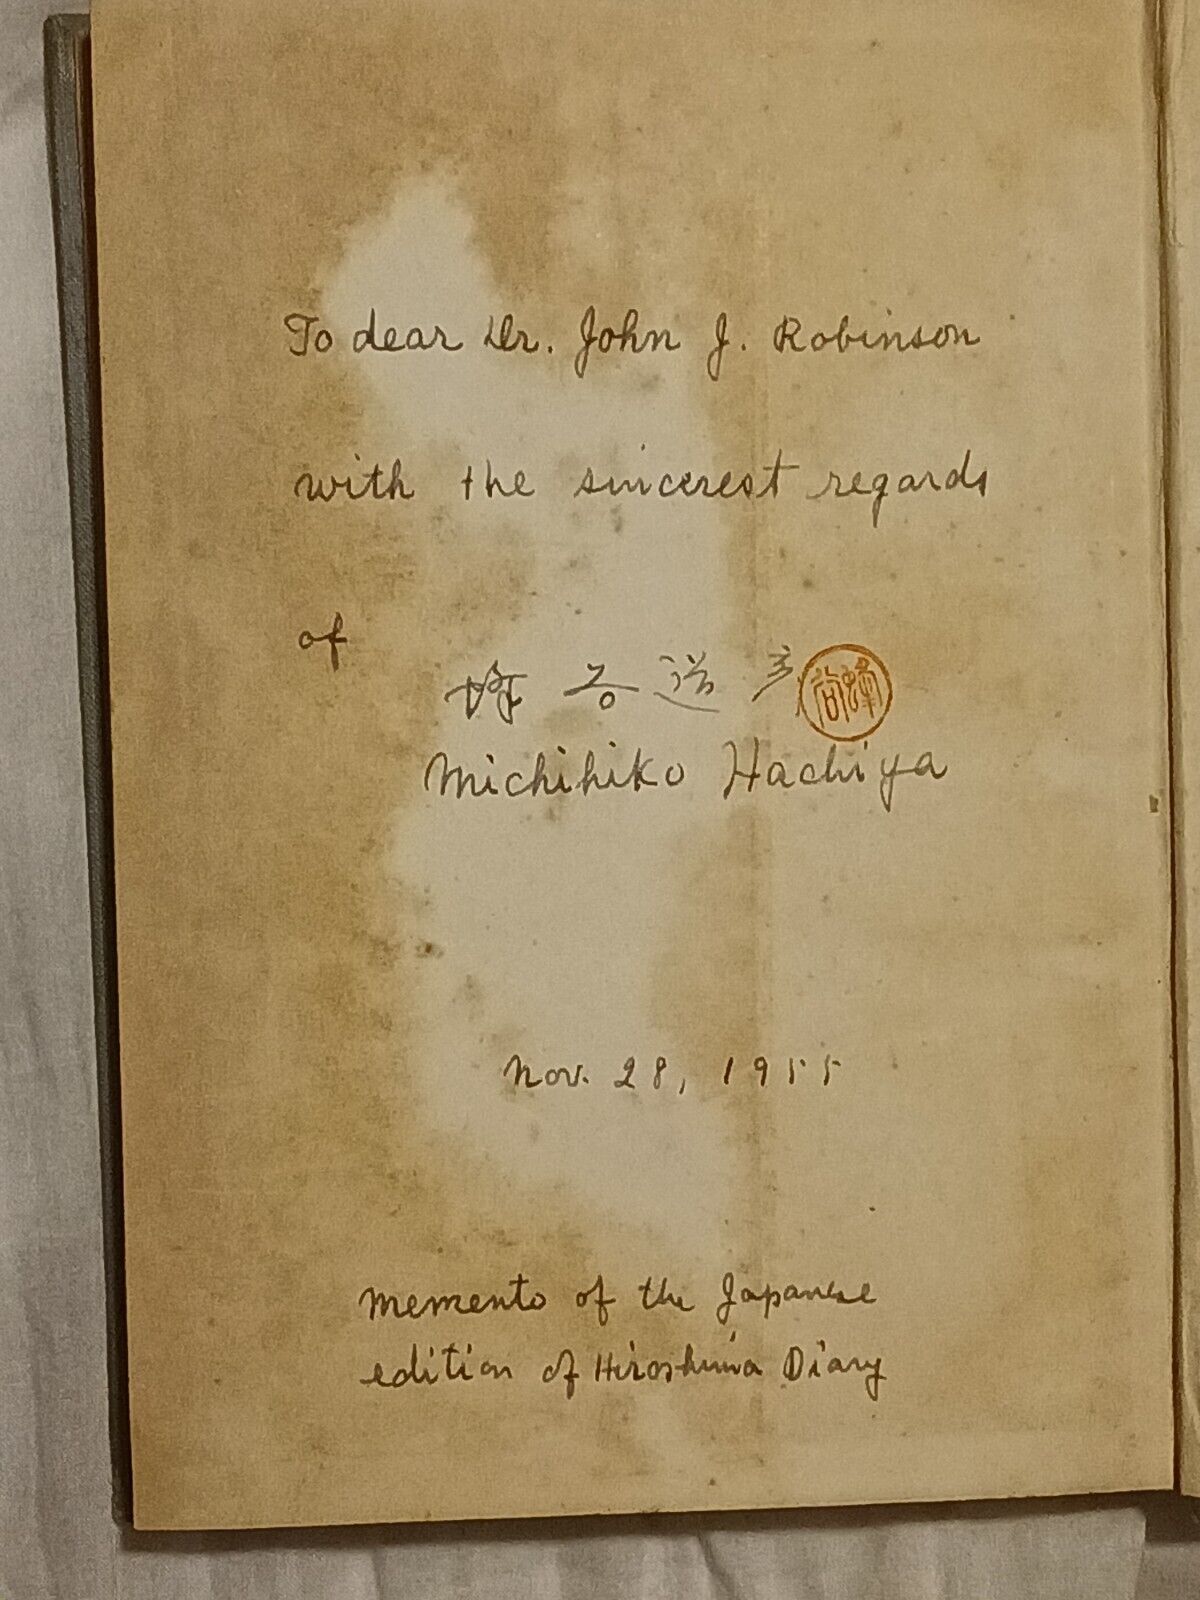 To dear Dr. John J. Robinson
with the sincerest regards
of
蜂谷道彦
Michihiko Hachiya
Nov. 28, 1955
Memento of the Japanese
edition of Hiroshima Diary